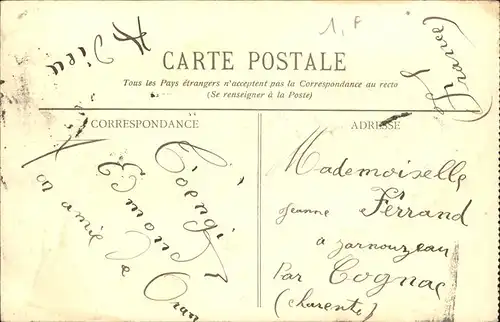 1, F
A Dieu
CARTE POSTALE
Tous les Pays étrangers n'acceptent pas la Correspondance au recto
(Se renseigner à la Poste)
(France)
CORRESPONDANCE
ADRESSE
Ton amie
Oran
Mademoiselle
Jeanne Ferrand
a Jarnouzeau
Par Cognac
(charente)